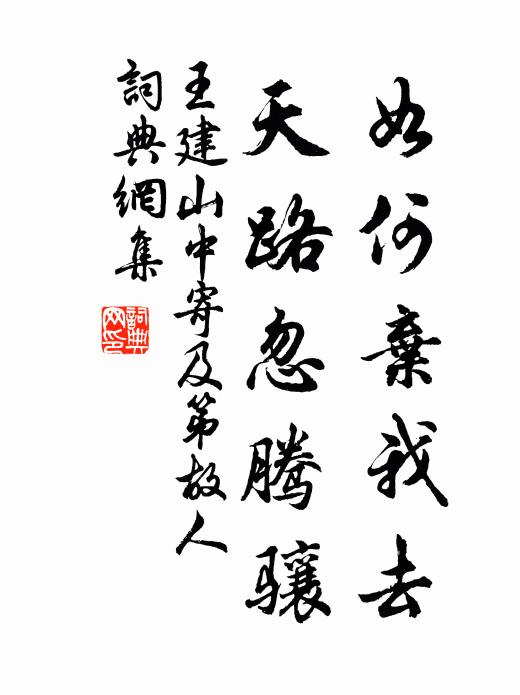 如何棄我去
天路忽腾骧
王建山中寄及第故人
詞典網集
詞典网印